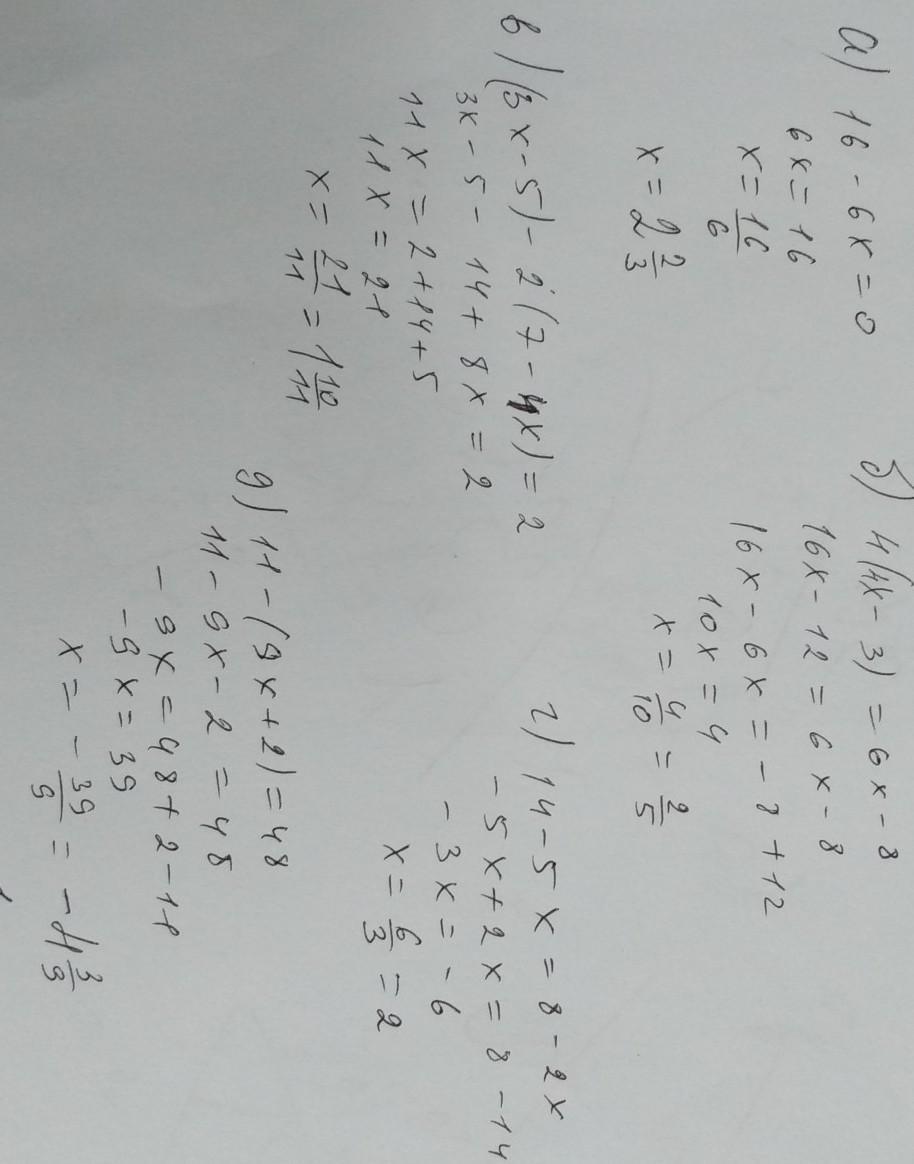 а) 16 - 6x = 0
6x = 16
x = 16/6
x = 2 2/3
б) 4(4x - 3) = 6x - 8
16x - 12 = 6x - 8
16x - 6x = - 8 + 12
10x = 4
x = 4/10 = 2/5
в) (3x - 5) - 2(7 - 4x) = 2
3x - 5 - 14 + 8x = 2
11x = 2 + 14 + 5
11x = 21
x = 21/11 = 1 10/11
г) 14 - 5x = 8 - 2x
- 5x + 2x = 8 - 14
- 3x = - 6
x = 6/3 = 2
д) 11 - (9x + 2) = 48
11 - 9x - 2 = 48
- 9x = 48 + 2 - 11
- 9x = 39
x = - 39/9 = - 4 3/9